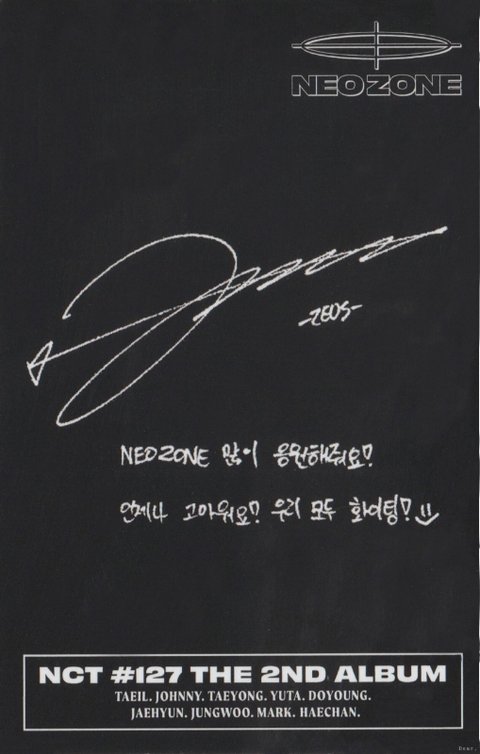 NEO ZONE
-ZEUS-
NEO ZONE 많이 응원해줘요!
언제나 고마워요! 우리 모두 화이팅!
NCT #127 THE 2ND ALBUM
TAEIL. JOHNNY. TAEYONG. YUTA. DOYOUNG.
JAEHYUN. JUNGWOO. MARK. HAECHAN.
Dear,